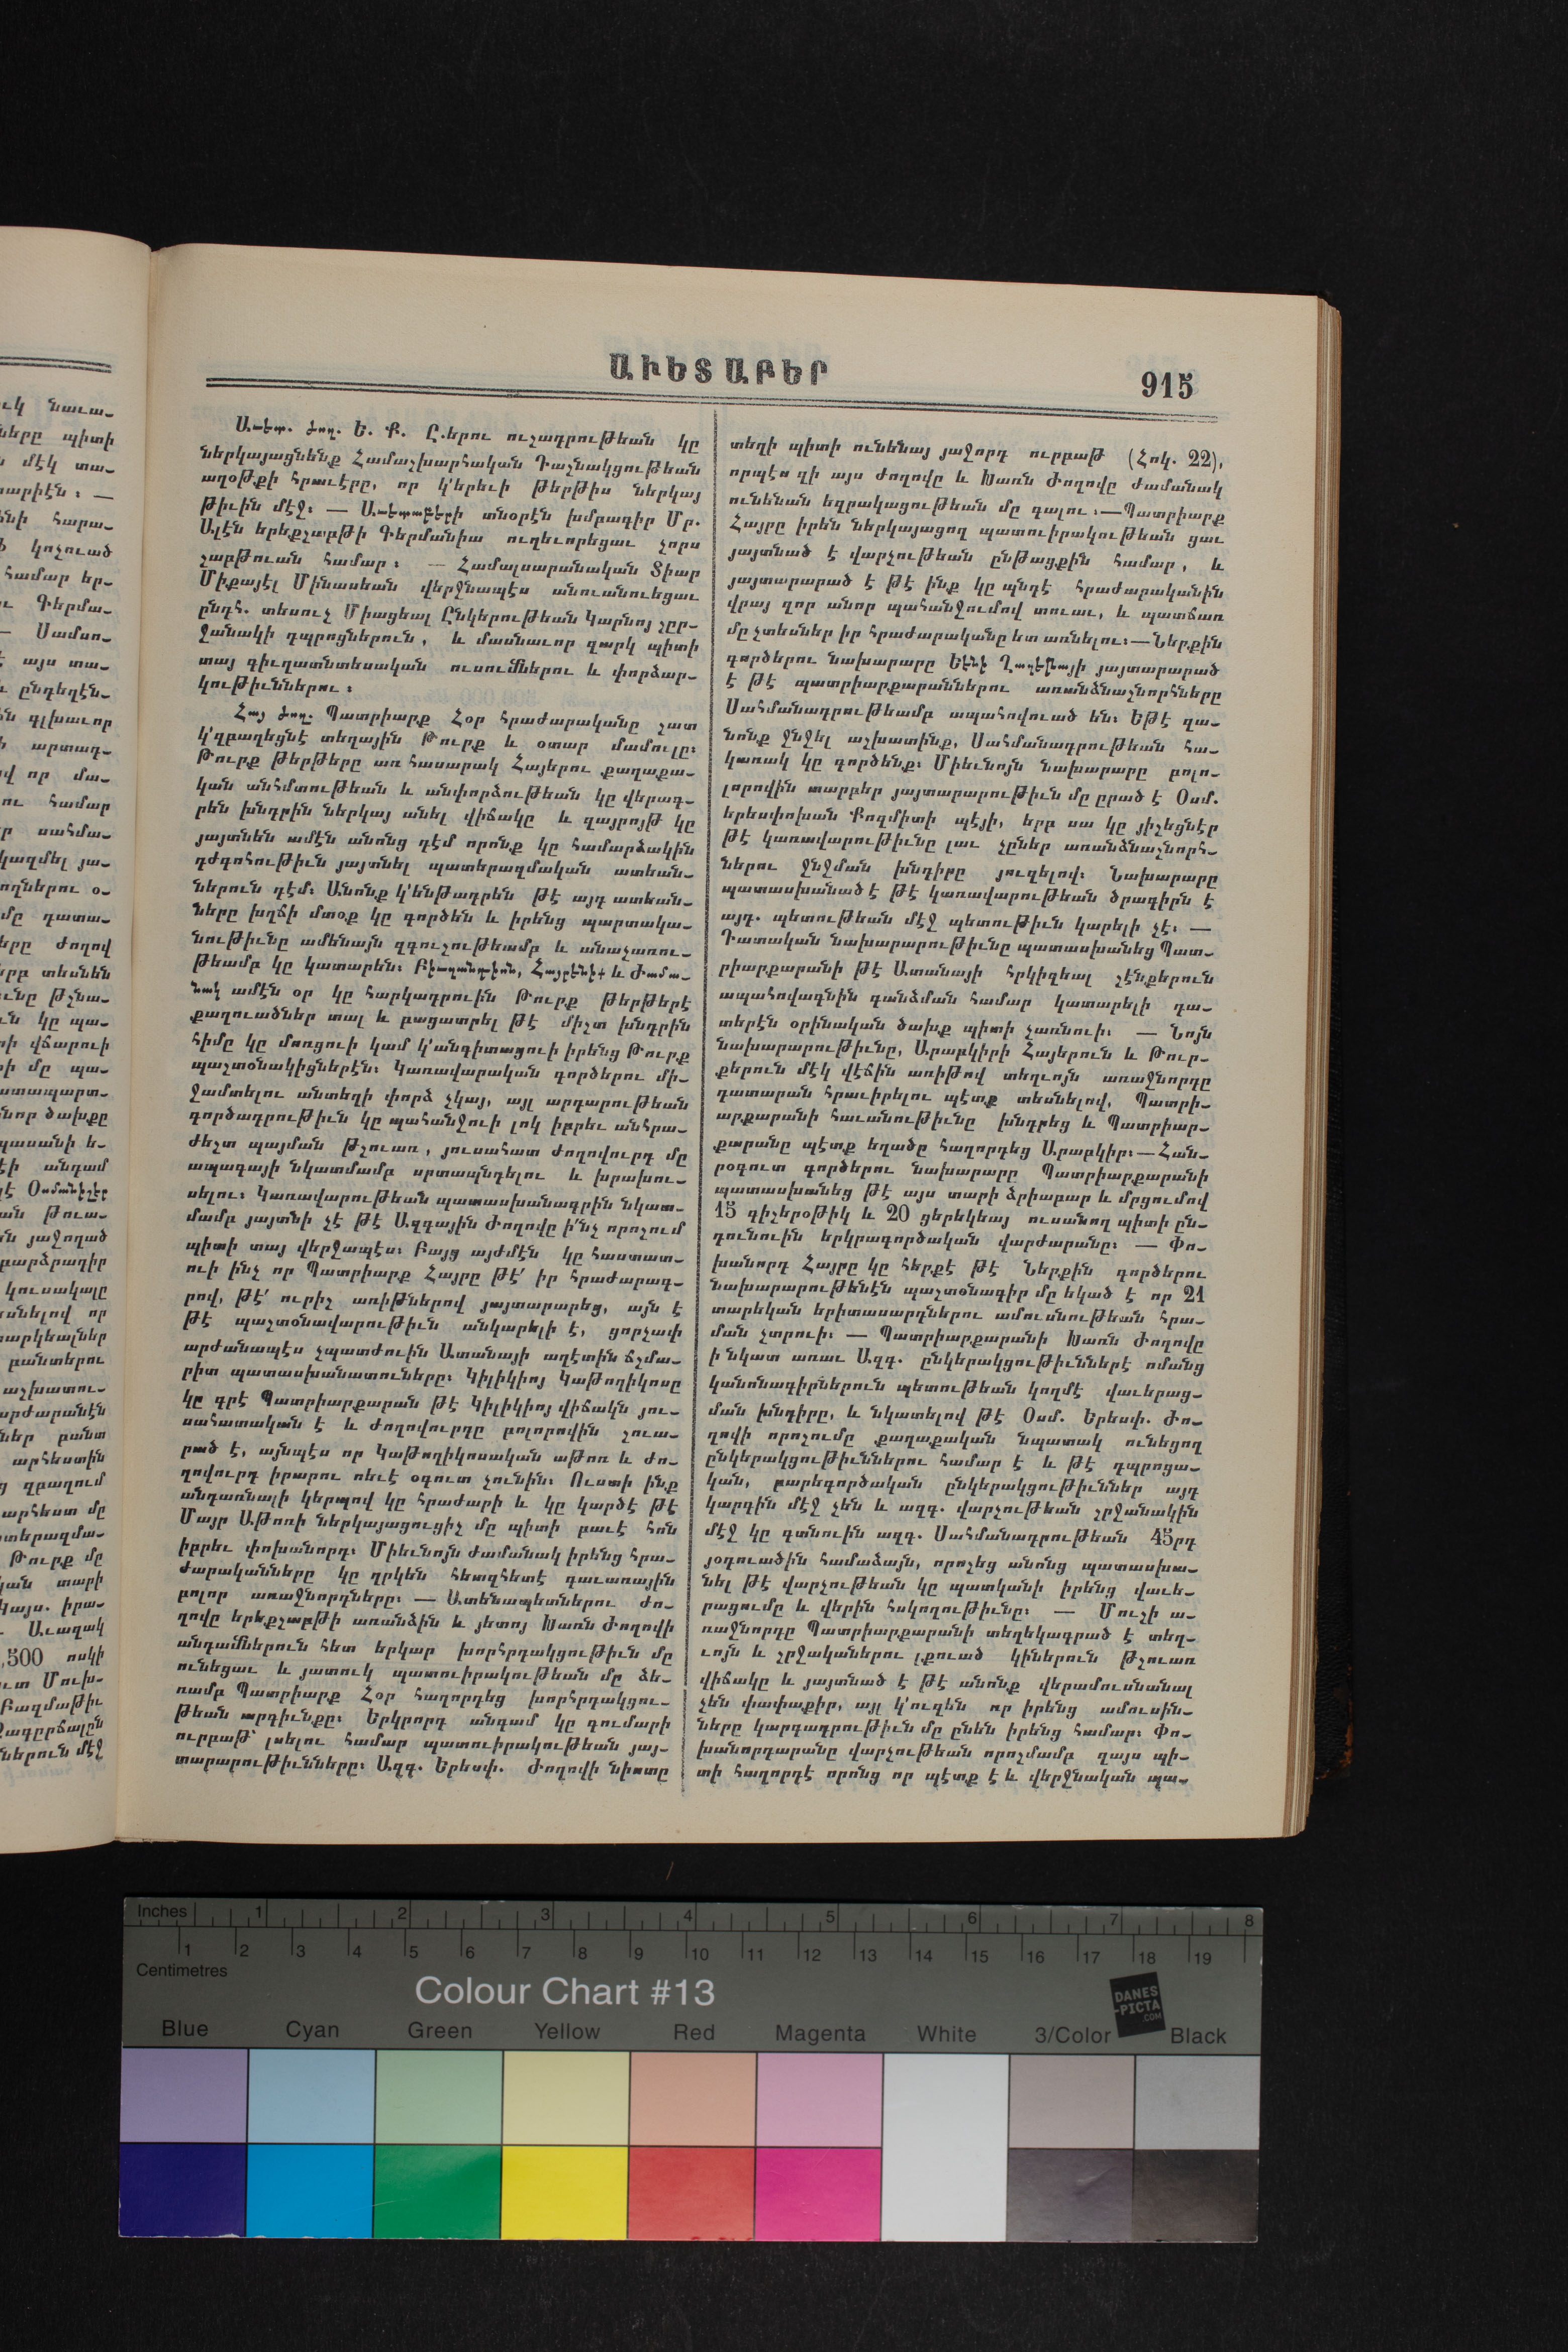 ԱՒԵՏԱԲԵՐ
915
Աւետ. Ժող. Ե. Ք. Ը.երու ուշադրութեան կը
ներկայացնենք Համաշխարհական Դաշնակցութեան
աղօթքի հրաւէրը, որ կ'երեւի թերթիս ներկայ
թիւին մէջ։ — Աւետաբերի տնօրէն խմբագիր Մր.
Ալէն երեքշաբթի Գերմանիա ուղեւորեցաւ չորս
շաբթուան համար։ — Համալսարանական Տիար
Միքայէլ Մինասեան վերջնապէս անուանուեցաւ
ընդհ. տեսուչ Միացեալ Ընկերութեան Կարնոյ շըր—
ջանակի դպրոցներուն, և մասնաւոր զարկ պիտի
տայ գիւղատնտեսական ուսումներու և փորձար—
կութիւններու։
Հայ Ժող. Պատրիարք Հօր հրաժարականը շատ
կ'զբաղեցնէ տեղային Թուրք և օտար մամուլը։
Թուրք թերթերը առ հասարակ Հայերու քաղաքա—
կան անհմտութեան և անփորձութեան կը վերագ—
րեն խնդրին ներկայ անել վիճակը և զայրոյթ կը
յայտնեն ամէն անոնց դէմ որոնք կը համարձակին
դժգոհութիւն յայտնել պատերազմական ատեան—
ներուն դէմ։ Անոնք կ'ենթադրեն թէ այդ ատեան—
ները խղճի մտօք կը գործեն և իրենց պարտակա—
նութիւնը ամենայն զգուշութեամբ և անաչառու—
թեամբ կը կատարեն։ Բիւզանդիոն, Հայրենիք և Ժամա—
նակ ամէն օր կը հարկադրուին Թուրք թերթերէ
քաղուածներ տալ և բացատրել թէ միշտ խնդրին
հիմը կը մոռցուի կամ կ'անգիտացուի իրենց Թուրք
պաշտօնակիցներէն։ Կառավարական գործերու մի—
ջամտելու անտեղի փորձ չկայ, այլ արդարութեան
գործադրութիւն կը պահանջուի լոկ իբրեւ անհրա—
ժեշտ պայման թշուառ, յուսահատ ժողովուրդ մը
ապագայի նկատմամբ սրտապնդելու և խրախու—
սելու։ Կառավարութեան պատասխանագրին նկատ—
մամբ յայտնի չէ թէ Ազգային Ժողովը ի՛նչ որոշում
պիտի տայ վերջապէս։ Բայց այժմէն կը հաստատ—
ուի ինչ որ Պատրիարք Հայրը թէ՛ իր հրաժարագ—
րով, թէ՛ ուրիշ առիթներով յայտարարեց, այն է
թէ պաշտօնավարութիւն անկարելի է, ցորչափ
արժանապէս չպատժուին Ատանայի աղէտին ճշմա—
րիտ պատասխանատուները։ Կիլիկիոյ Կաթողիկոսը
կը գրէ Պատրիարքարան թէ Կիլիկիոյ վիճակն յու—
սահատական է և ժողովուրդը բոլորովին չուա—
րած է, այնպէս որ Կաթողիկոսական աթոռ և ժո—
ղովուրդ իրարու ոեւէ օգուտ չունին։ Ուստի ինք
անդառնալի կերպով կը հրաժարի և կը կարծէ թէ
Մայր Աթոռի ներկայացուցիչ մը պիտի բաւէ հոն
իբրեւ փոխանորդ։ Միեւնոյն ժամանակ իրենց հրա—
ժարականները կը ղրկեն հետզհետէ գաւառային
բոլոր առաջնորդները։ — Ատենապետներու ժո—
ղովը երեքշաբթի առանձին և յետոյ Խառն Ժողովի
անդամներուն հետ երկար խորհրդակցութիւն մը
ունեցաւ և յատուկ պատուիրակութեան մը ձե—
ռամբ Պատրիարք Հօր հաղորդեց խորհրդակցու—
թեան արդիւնքը։ Երկրորդ անգամ կը գումարի
ուրբաթ՝ լսելու համար պատուիրակութեան յայ—
տարարութիւնները։ Ազգ. Երեսփ. Ժողովի նիստը
տեղի պիտի ունենայ յաջորդ ուրբաթ (Հոկ. 22),
որպէս զի այս ժողովը և Խառն Ժողովը ժամանակ
ունենան եզրակացութեան մը գալու։—Պատրիարք
Հայրը իրեն ներկայացող պատուիրակութեան ցաւ
յայտնած է վարչութեան ընթացքին համար, և
յայտարարած է թէ ինք կը պնդէ հրաժարականին
վրայ զոր անոր պահանջումով տուաւ, և պատճառ
մը չտեսներ իր հրաժարականը ետ առնելու։—Ներքին
գործերու նախարարը Եէնի Ղազէթայի յայտարարած
է թէ պատրիարքարաններու առանձնաշնորհները
Սահմանադրութեամբ ապահովուած են։ Եթէ զա—
նոնք ջնջել աշխատինք, Սահմանադրութեան հա—
կառակ կը գործենք։ Միեւնոյն նախարարը բոլո—
լորովին տարբեր յայտարարութիւն մը ըրած է Օսմ.
երեսփոխան Քոզմիտի պէյի, երբ սա կը յիշեցնէր
թէ կառավարութիւնը լաւ չըներ առանձնաշնորհ—
ներու ջնջման խնդիրը յուզելով։ Նախարարը
պատասխանած է թէ կառավարութեան ծրագիրն է
այդ. պետութեան մէջ պետութիւն կարելի չէ։ —
Դատական նախարարութիւնը պատասխանեց Պատ—
րիարքարանի թէ Ատանայի հրկիզեալ շէնքերուն
ապահովագնին գանձման համար կատարելի դա—
տերէն օրինական ծախք պիտի չառնուի։ — Նոյն
նախարարութիւնը, Արաբկիրի Հայերուն և Թուր—
քերուն մէկ վէճին առիթով տեղւոյն առաջնորդը
դատարան հրաւիրելու պէտք տեսնելով, Պատրի—
արքարանի հաւանութիւնը խնդրեց և Պատրիար—
քարանը պէտք եղածը հաղորդեց Արաբկիր։—Հան—
րօգուտ գործերու նախարարը Պատրիարքարանի
պատասխանեց թէ այս տարի ձրիաբար և մրցումով
15 գիշերօթիկ և 20 ցերեկեայ ուսանող պիտի ըն—
դունուին երկրագործական վարժարանը։ — Փո—
խանորդ Հայրը կը հերքէ թէ Ներքին գործերու
նախարարութենէն պաշտօնագիր մը եկած է որ 21
տարեկան երիտասարդներու ամուսնութեան հրա—
ման չտրուի։ — Պատրիարքարանի Խառն Ժողովը
ի նկատ առաւ Ազգ. ընկերակցութիւններէ ոմանց
կանոնագիրներուն պետութեան կողմէ վաւերաց—
ման խնդիրը, և նկատելով թէ Օսմ. Երեսփ. Ժո—
ղովի որոշումը քաղաքական նպատակ ունեցող
ընկերակցութիւններու համար է և թէ դպրոցա—
կան, բարեգործական ընկերակցութիւններ այդ
կարգին մէջ չեն և ազգ. վարչութեան շրջանակին
մէջ կը գտնուին ազգ. Սահմանադրութեան 45րդ
յօդուածին համաձայն, որոշեց անոնց պատասխա—
նել թէ վարչութեան կը պատկանի իրենց վաւե—
րացումը և վերին հսկողութիւնը։ — Մուշի ա—
ռաջնորդը Պատրիարքարանի տեղեկագրած է տեղ—
ւոյն և շրջականերու լքուած կիներուն թշուառ
վիճակը և յայտնած է թէ անոնք վերամուսնանալ
չեն փափաքիր, այլ կ'ուզեն որ իրենց ամուսին—
ները կարգադրութիւն մը ընեն իրենց համար։ Փո—
խանորդարանը վարչութեան որոշմամբ զայս պի—
տի հաղորդէ որոնց որ պէտք է և վերջնական պա—
Inches 1 2 3 4 5 6 7 8
1 2 3 4 5 6 7 8 9 10 11 12 13 14 15 16 17 18 19
Centimetres
Colour Chart #13
DANES
-PICTA
.COM
Blue Cyan Green Yellow Red Magenta White 3/Color Black